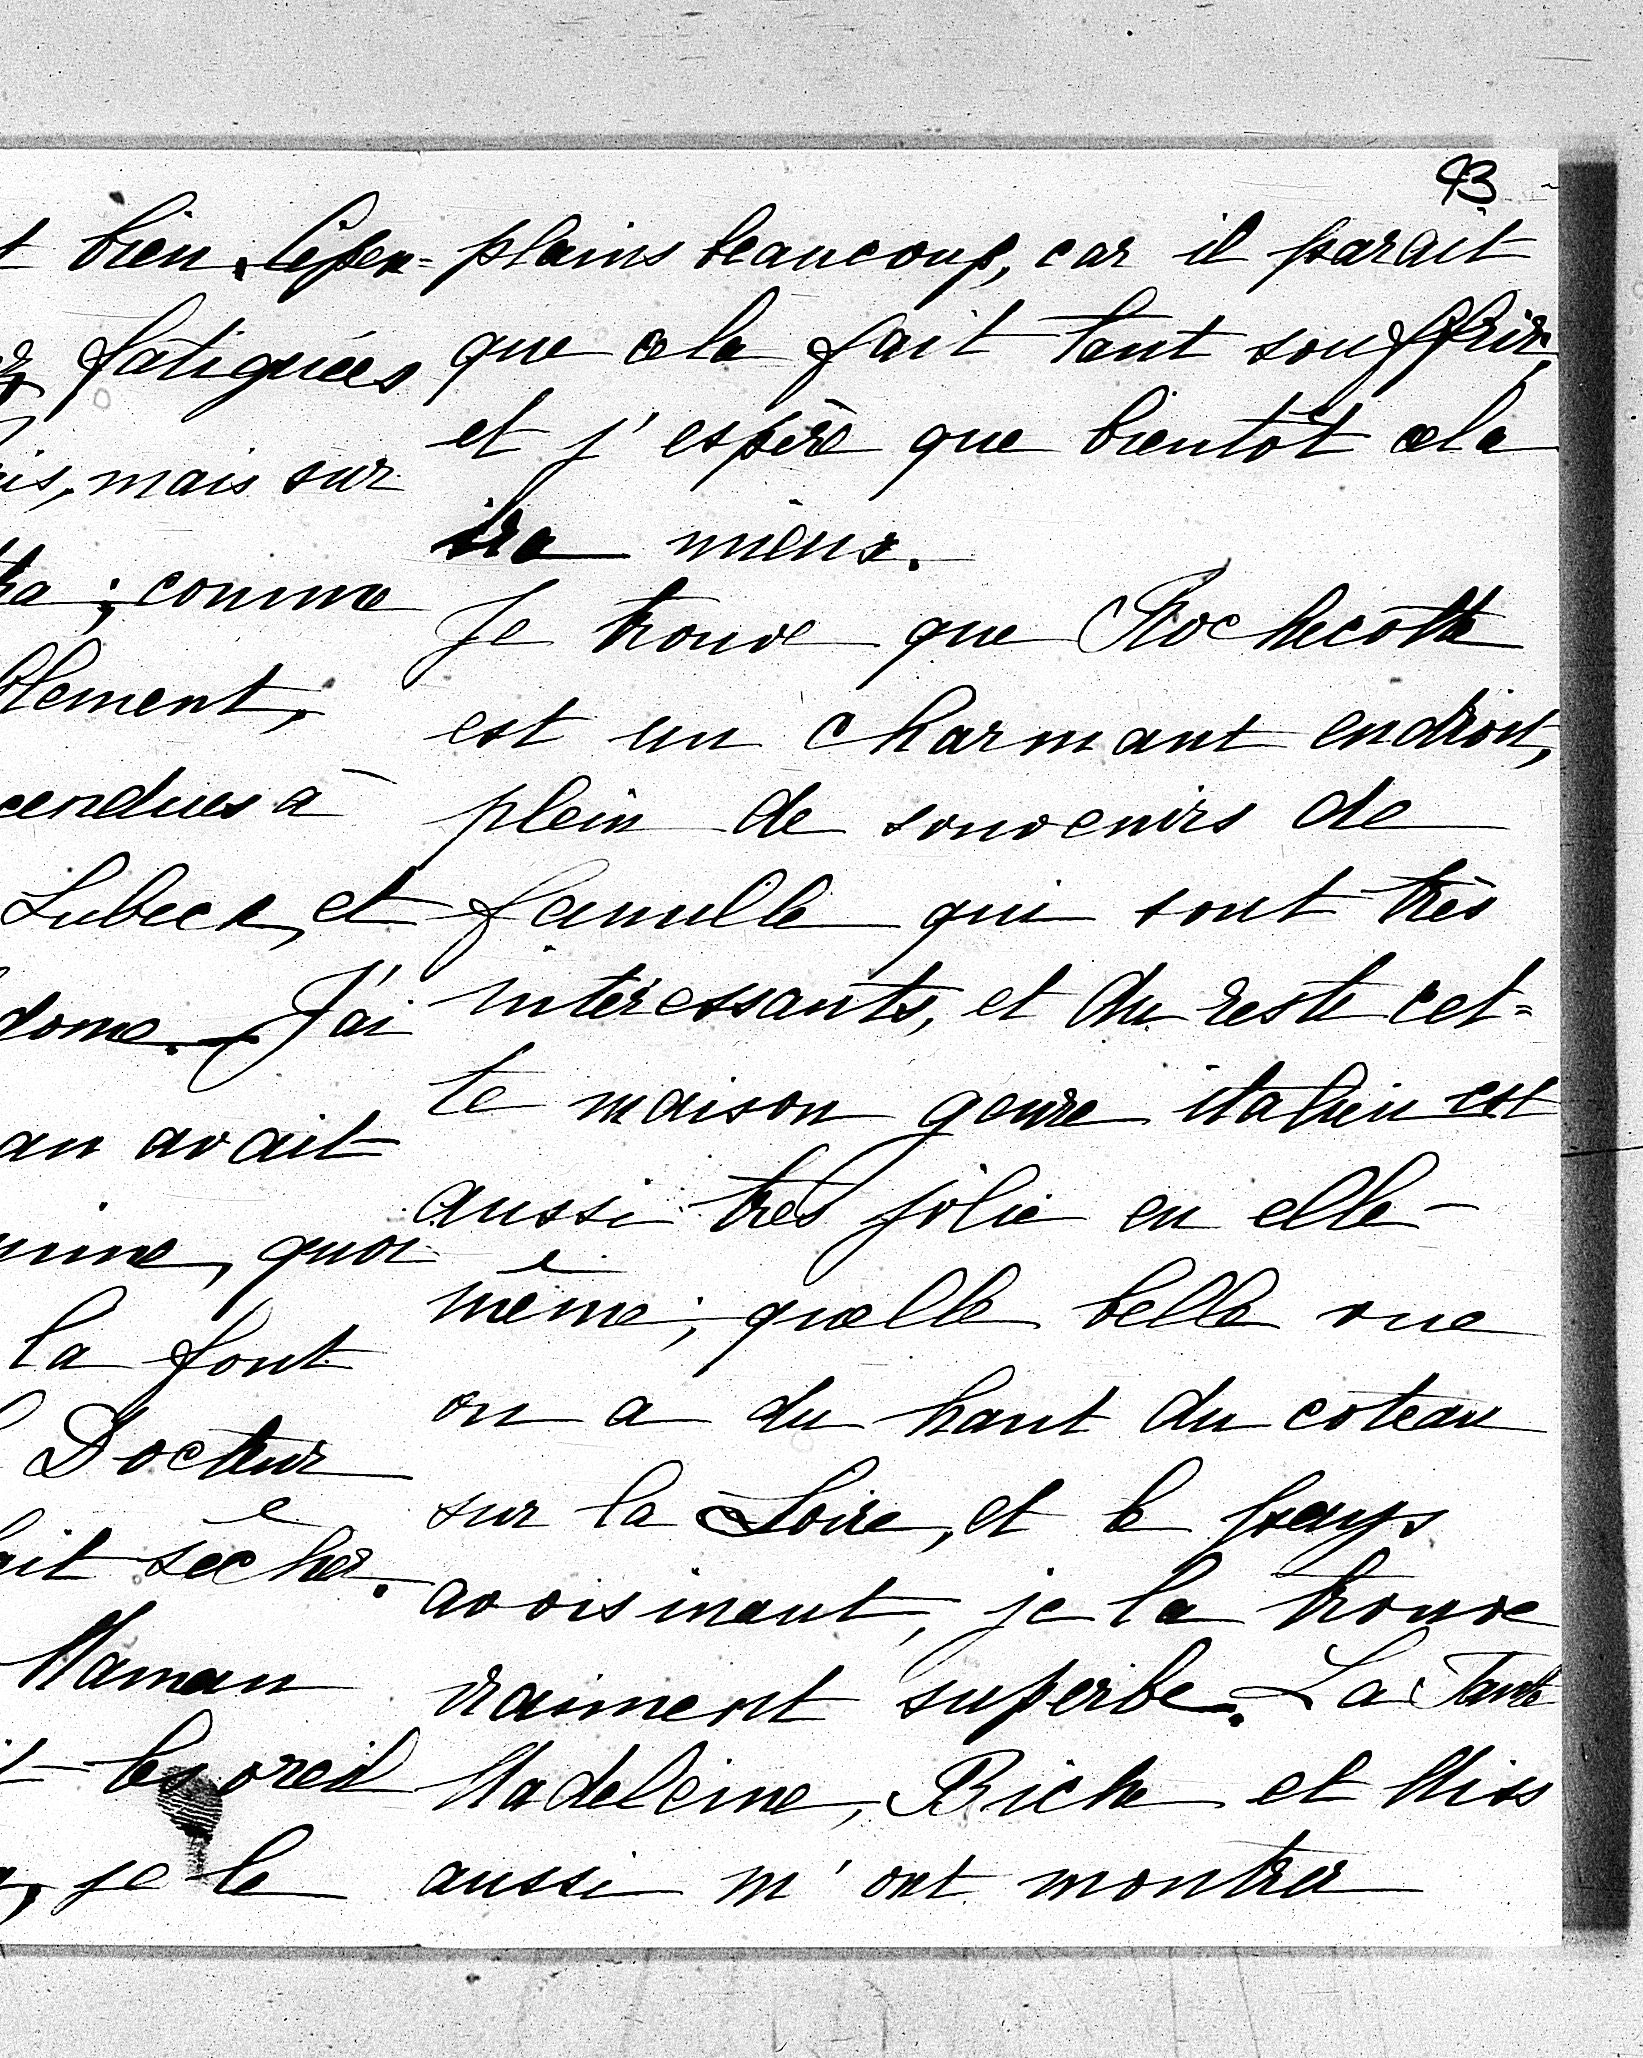 93
t bien, cepen=
fatiguées
is, mais sur
tra ; comme
blement,
cendues à
Lubeck, et
dome. — J'ai
an avait
mine, quoi
la font
Docteur
ait sécher.
Maman
t les oreil
je le
plains beaucoup, car il parait
que cela fait tant souffrir,
et j'espère que bientôt cela
ira mieux.
Je trouve que Rochecotte
est un charmant endroit,
plein de souvenirs de
famille qui sont très
intéressants, et du reste cet=
te maison genre italien est
aussi très jolie en elle-
même ; quelle belle vue
on a du haut du coteau
sur la Loire, et le pays
avoisinant, je la trouve
vraiment superbe. La Tante
Madeleine, Biche et Miss
aussi m'ont montrer